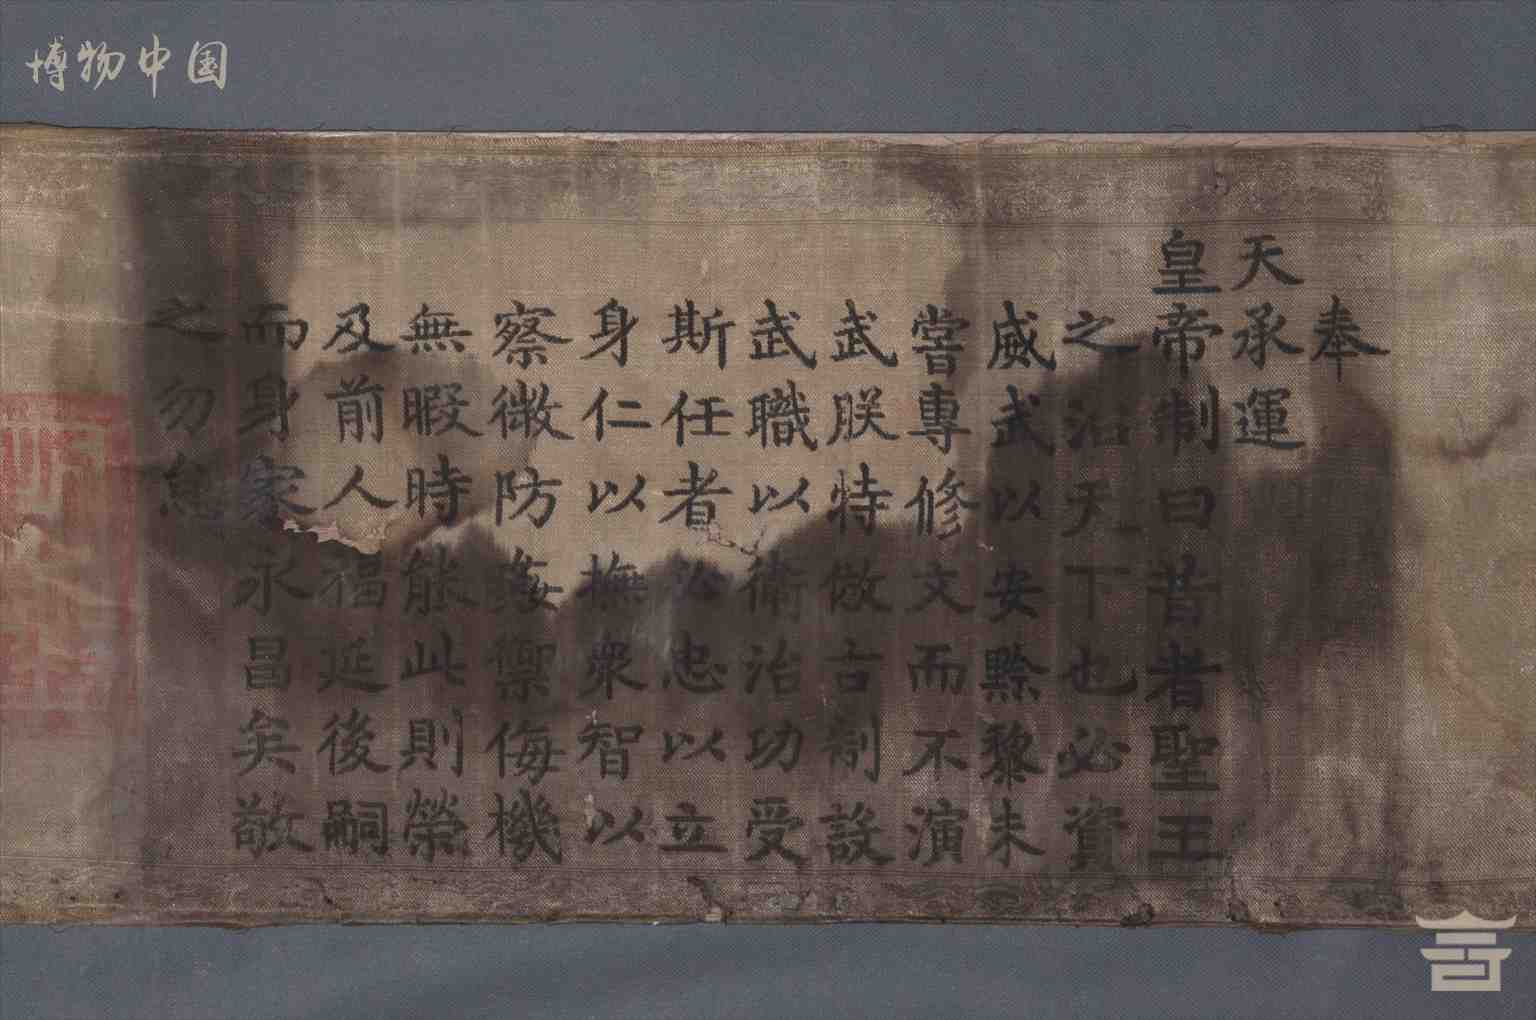 博物中国
奉
天承運
皇帝制曰昔者聖王
之治天下也必資
威武以安黔黎未
嘗專修文而不演
武朕特倣古制設
武職以衛治功受
斯任者必忠以立
身仁以撫衆智以
察微防姦禦侮機
無暇時能此則榮
及前人福延後嗣
而身家永昌矣敬
之勿怠